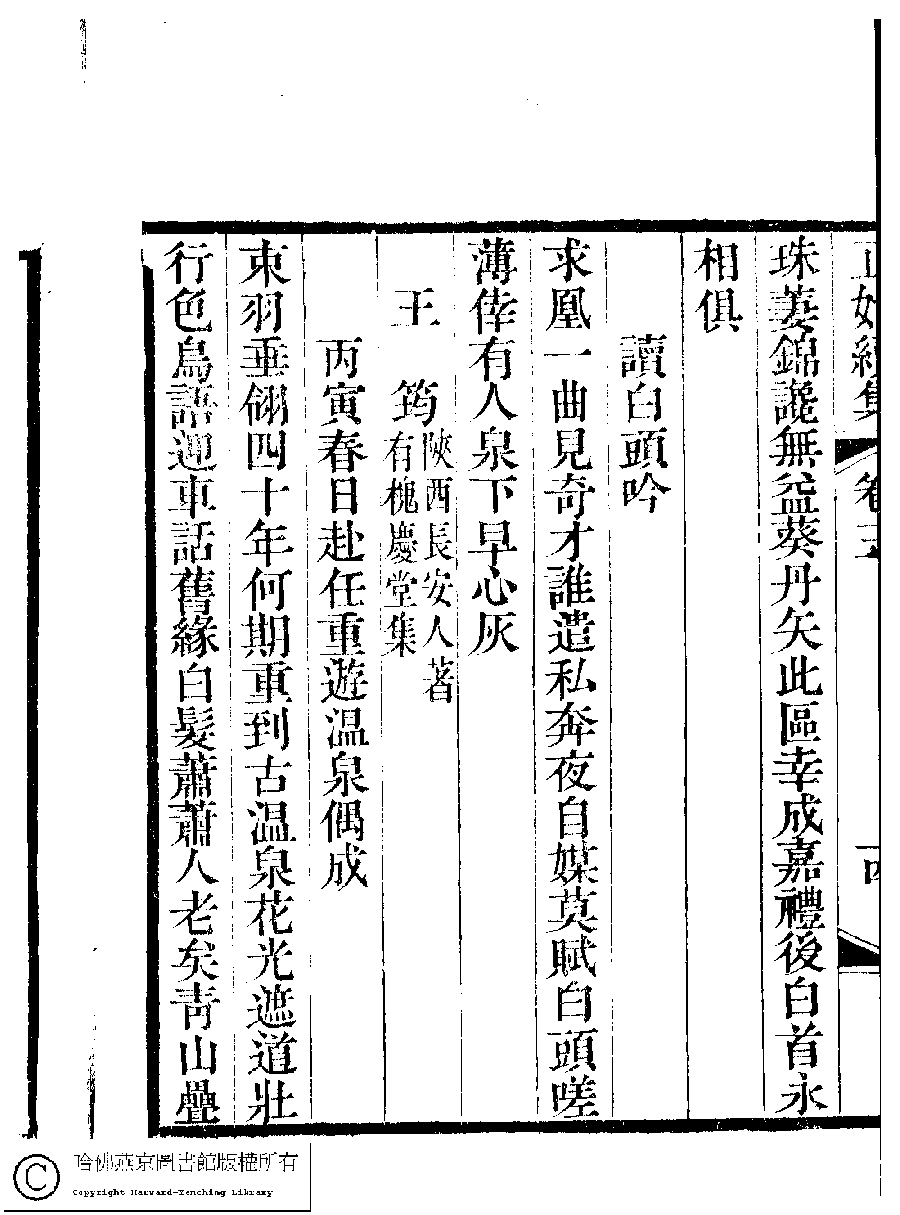 珠萋錦讒無益葵丹矢此區幸成嘉禮後白首永
相俱
讀白頭吟
求凰一曲見奇才誰遣私奔夜自媒莫賦白頭嗟
薄倖有人泉下早心灰
王筠陝西長安人著
有槐慶堂集
丙寅春日赴任重遊温泉偶成
束羽垂翎四十年何期重到古温泉花光遮道壯
行色鳥語迎車話舊緣白髮蕭蕭人老矣青山疊
哈佛燕京圖書館版權所有
Copyright Harvard-Yenching Library